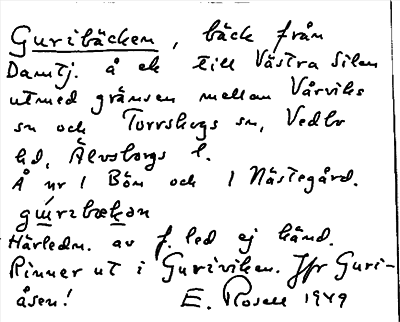 Guribäcken, bäck från
Damtj. å ek till Västra Silen
utmed gränsen mellan Vårviks
sn och Torrskogs sn, Vedbo
hd, Älvsborgs l.
Å nr 1 Bön och 1 Nästegård.
gúrıbækən
Härledn. av f. led ej känd.
Rinner ut i Guriviken. Jfr Guri-
åsen! E. Rosell 1949